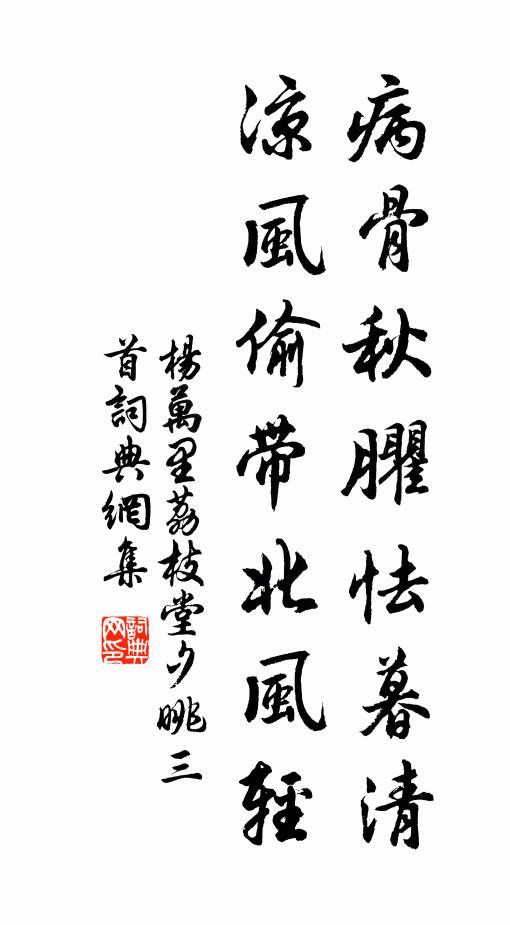 病骨秋臞怯暮清
凉風偷带北風輕
楊萬里荔枝堂夕眺三
首詞典網集